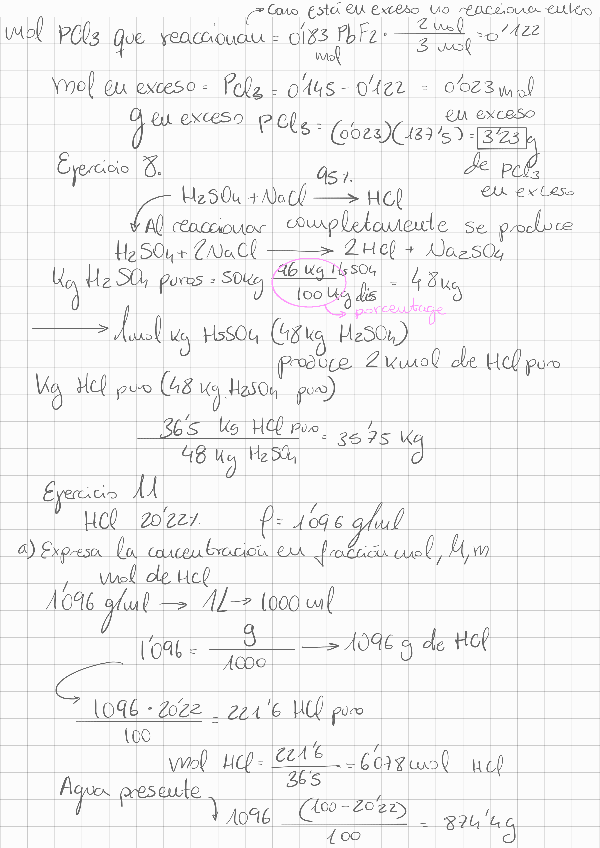 Como está en exceso no reacciona entero
mol PCl3 que reaccionan = 0'183 PbF2 · 2 mol / 3 mol = 0'122
mol
mol en exceso = PCl3 = 0'145 - 0'122 = 0'023 mol
en exceso
g en exceso PCl3 = (0'023)(137'5) = 3'23 g
de PCl3
en exceso
Ejercicio 8.
H2SO4 + NaCl 95% → HCl
Al reaccionar completamente se produce
H2SO4 + 2NaCl → 2HCl + Na2SO4
Kg H2SO4 puros = 50Kg 96 Kg H2SO4 / 100 Kg dis = 48kg
porcentage
→ 1mol kg H2SO4 (48kg H2SO4)
produce 2 Kmol de HCl puro
Kg HCl puro (48 Kg. H2SO4 puro)
36'5 kg HCl puro / 48 Kg H2SO4 = 35'75 Kg
Ejercicio 11
HCl 20'22% ρ = 1'096 g/ml
a) Expresa la concentración en fracción mol, M, m
mol de HCl
1'096 g/ml → 1L → 1000 ml
1'096 = g / 1000 → 1096 g de HCl
1096 · 20'22 / 100 = 221'6 HCl puro
mol HCl = 221'6 / 36'5 = 6'078 mol HCl
Agua presente
1096 (100 - 20'22) / 100 = 874'4 g